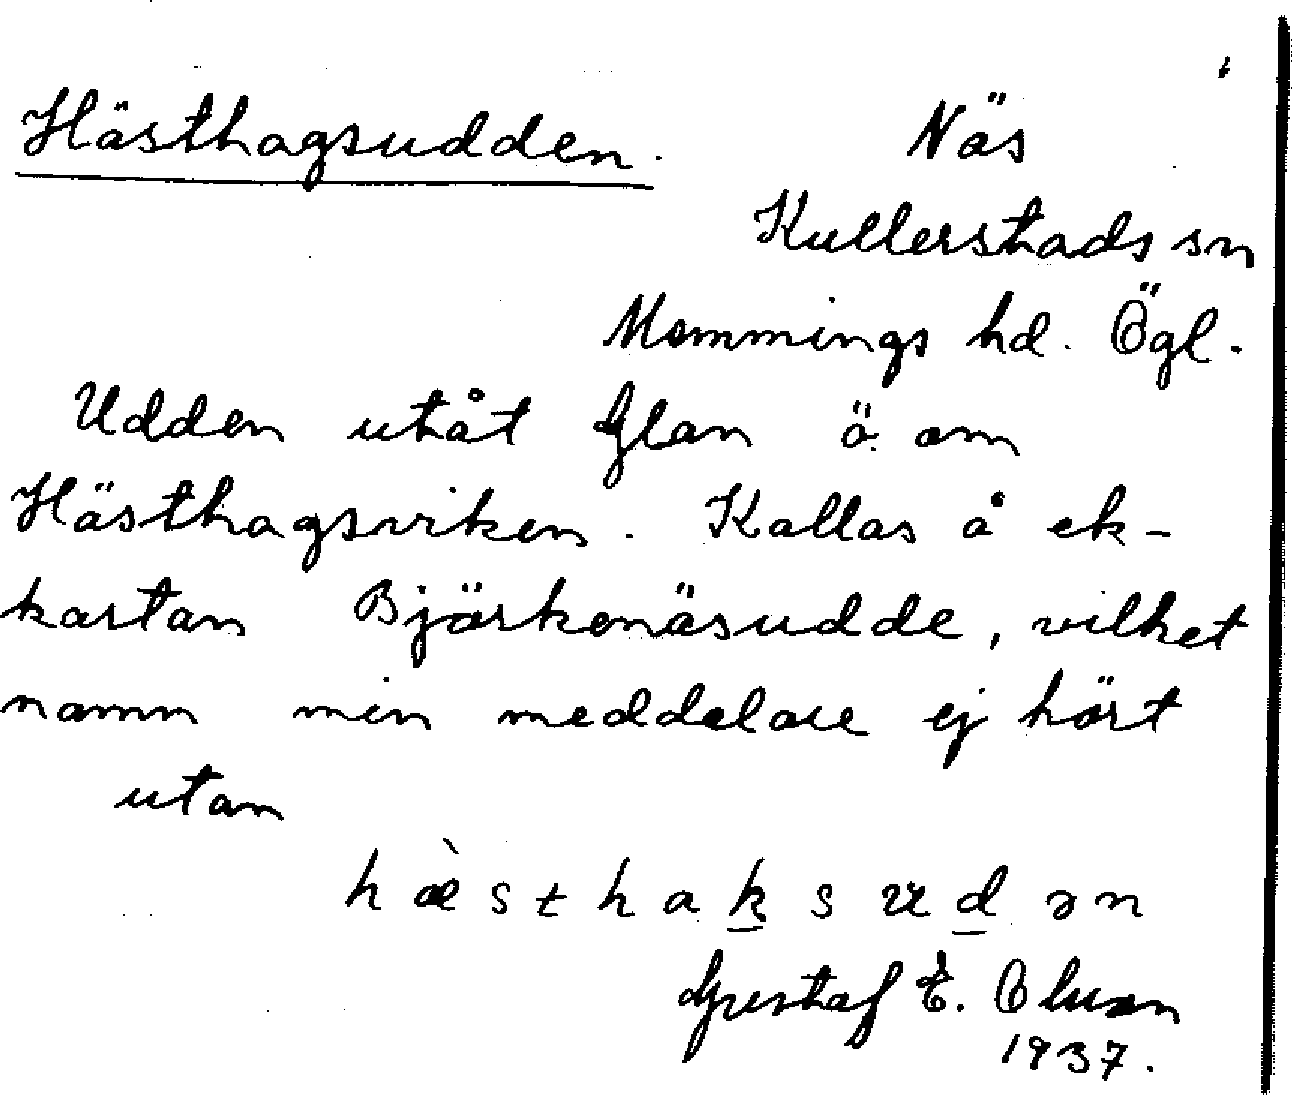 Hästhagsudden. Näs
Kullerstads sn
Memmings hd. Ögl.
Udden utåt Glan ö. om
Hästhagsviken. Kallas å ek-
kartan Björkenäsudde, vilket
namn min meddelare ej hört
utan
hæ̀sthak̠sud̠ən
Gustaf E.
1937.